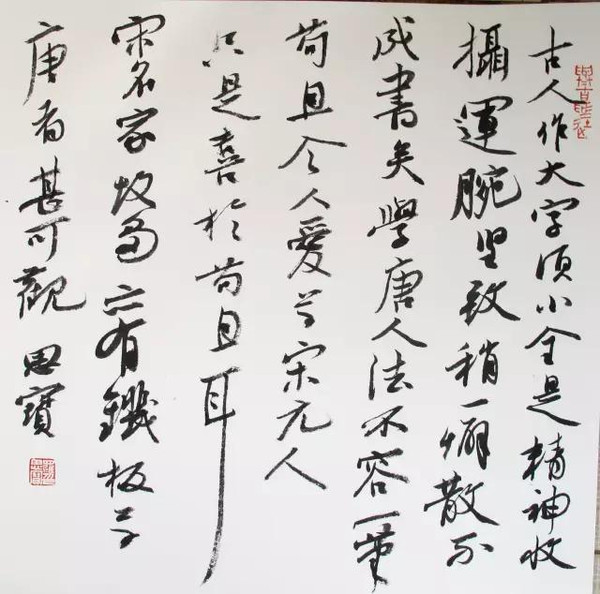 古人作大字须小全是精神收
攝運腕坚致稍一懈散不
成書矣學唐人法不容一筆
苟且今人愛宋元人
只是喜於苟且耳
宋名家故亦有鐵板学
唐者甚可觀 思寶